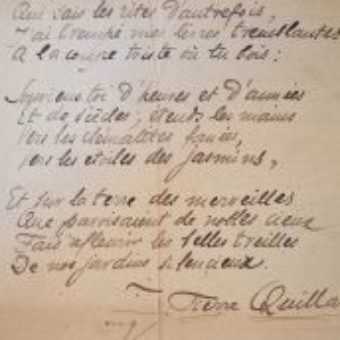 Qui sais les rites d'autrefois,
J'ai trempé mes lèvres tremblantes
A la coupe triste où tu bois :
Souviens toi d'heures et d'années
Et de siècles ; étends les mains
vers les clématites fanées,
vers les étoiles des jasmins,
Et sur la terre des merveilles
Que pavoisaient de nobles cieux
Fais refleurir les belles treilles
De nos jardins silencieux.
Pierre Quilla